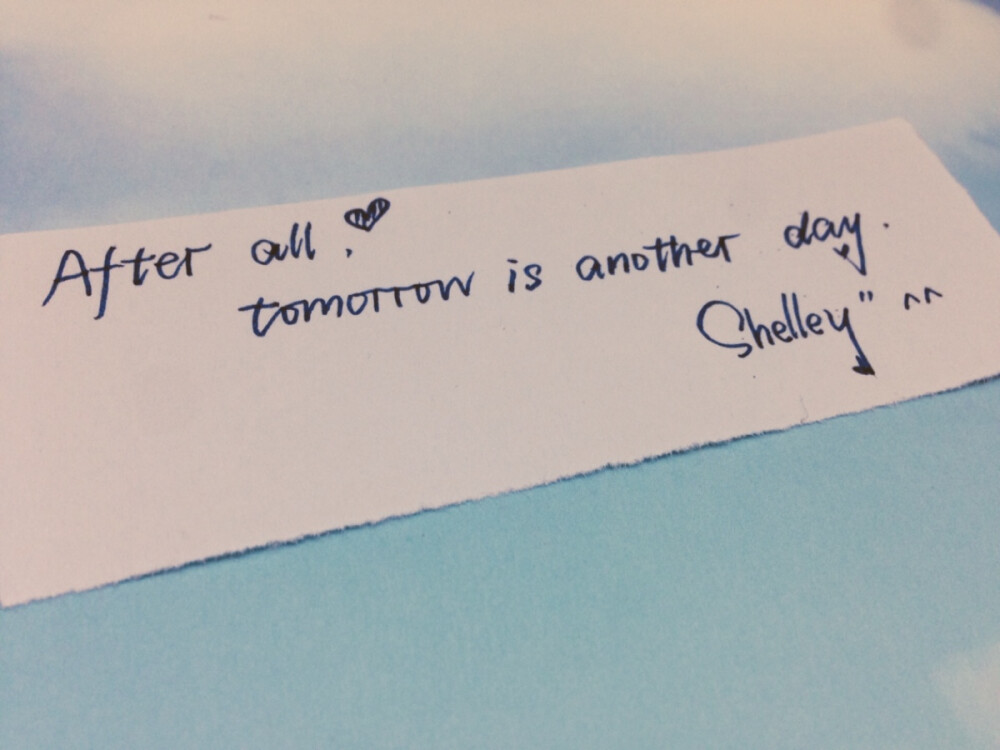 After all, ♥
tomorrow is another day.
Shelley" ^^